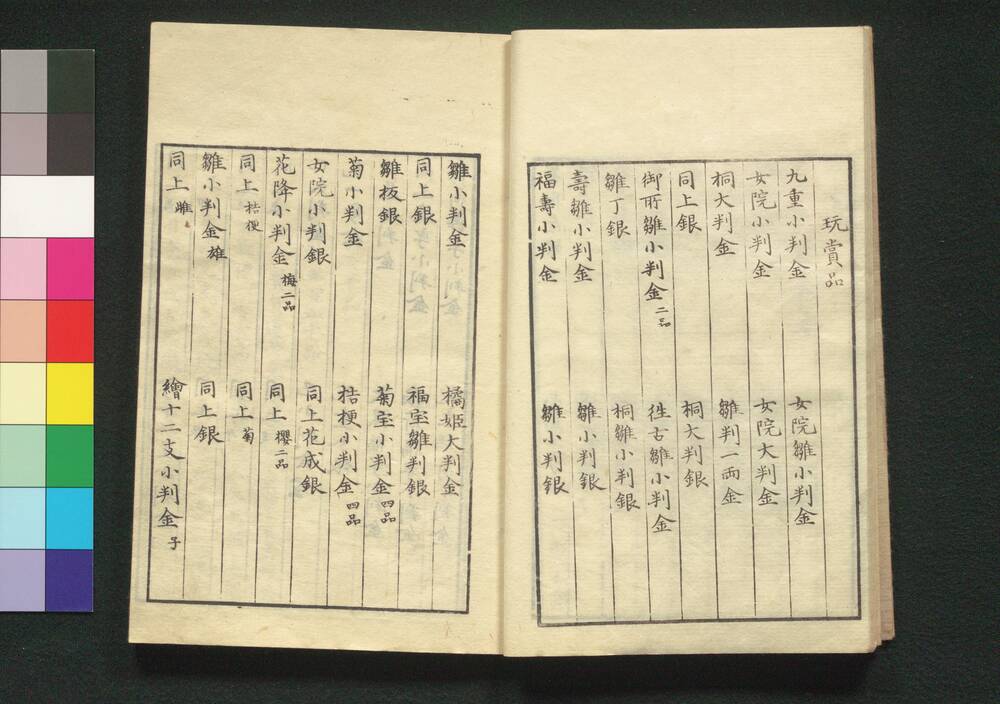 玩賞品
九重小判金 女院雛小判金
女院小判金 女院大判金
桐大判金 雛判一両金
同上銀 桐大判銀
御所雛小判金 二品 徃古雛小判金
雛丁銀 桐雛小判銀
壽雛小判金 雛小判銀
福壽小判金 雛小判銀
雛小判金 橘姫大判金
同上銀 福宝雛判銀
雛板銀 菊宝小判金 四品
菊小判金 桔梗小判金 四品
女院小判銀 同上花成銀
花降小判金 梅二品 同上 櫻二品
同上 桔梗 同上 菊
雛小判金 雄 同上銀
同上 雌 繪十二支小判金 子